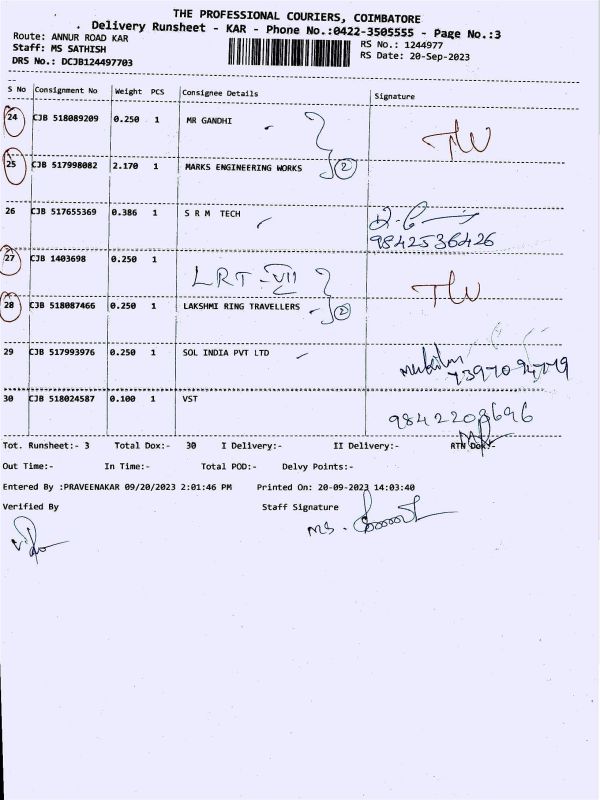 THE PROFESSIONAL COURIERS, COIMBATORE
Delivery Runsheet - KAR - Phone No.:0422-3505555 - Page No.:3
Route: ANNUR ROAD KAR
RS No.: 1244977
Staff: MS SATHISH
RS Date: 20-Sep-2023
DRS No.: DCJB124497703
S No Consignment No Weight PCS Consignee Details Signature
24 CJB 518089209 0.250 1 MR GANDHI
25 CJB 517998082 2.170 1 MARKS ENGINEERING WORKS 2
26 CJB 517655369 0.386 1 S R M TECH
9842536426
27 CJB 1403698 0.250 1 LRT-VII
28 CJB 518087466 0.250 1 LAKSHMI RING TRAVELLERS 2
29 CJB 517993976 0.250 1 SOL INDIA PVT LTD
30 CJB 518024587 0.100 1 VST
Tot. Runsheet:- 3 Total Dox:- 30 I Delivery:- II Delivery:- RTN Dox:-
Out Time:- In Time:- Total POD:- Delvy Points:-
Entered By :PRAVEENAKAR 09/20/2023 2:01:46 PM Printed On: 20-09-2023 14:03:40
Verified By Staff Signature
MS.